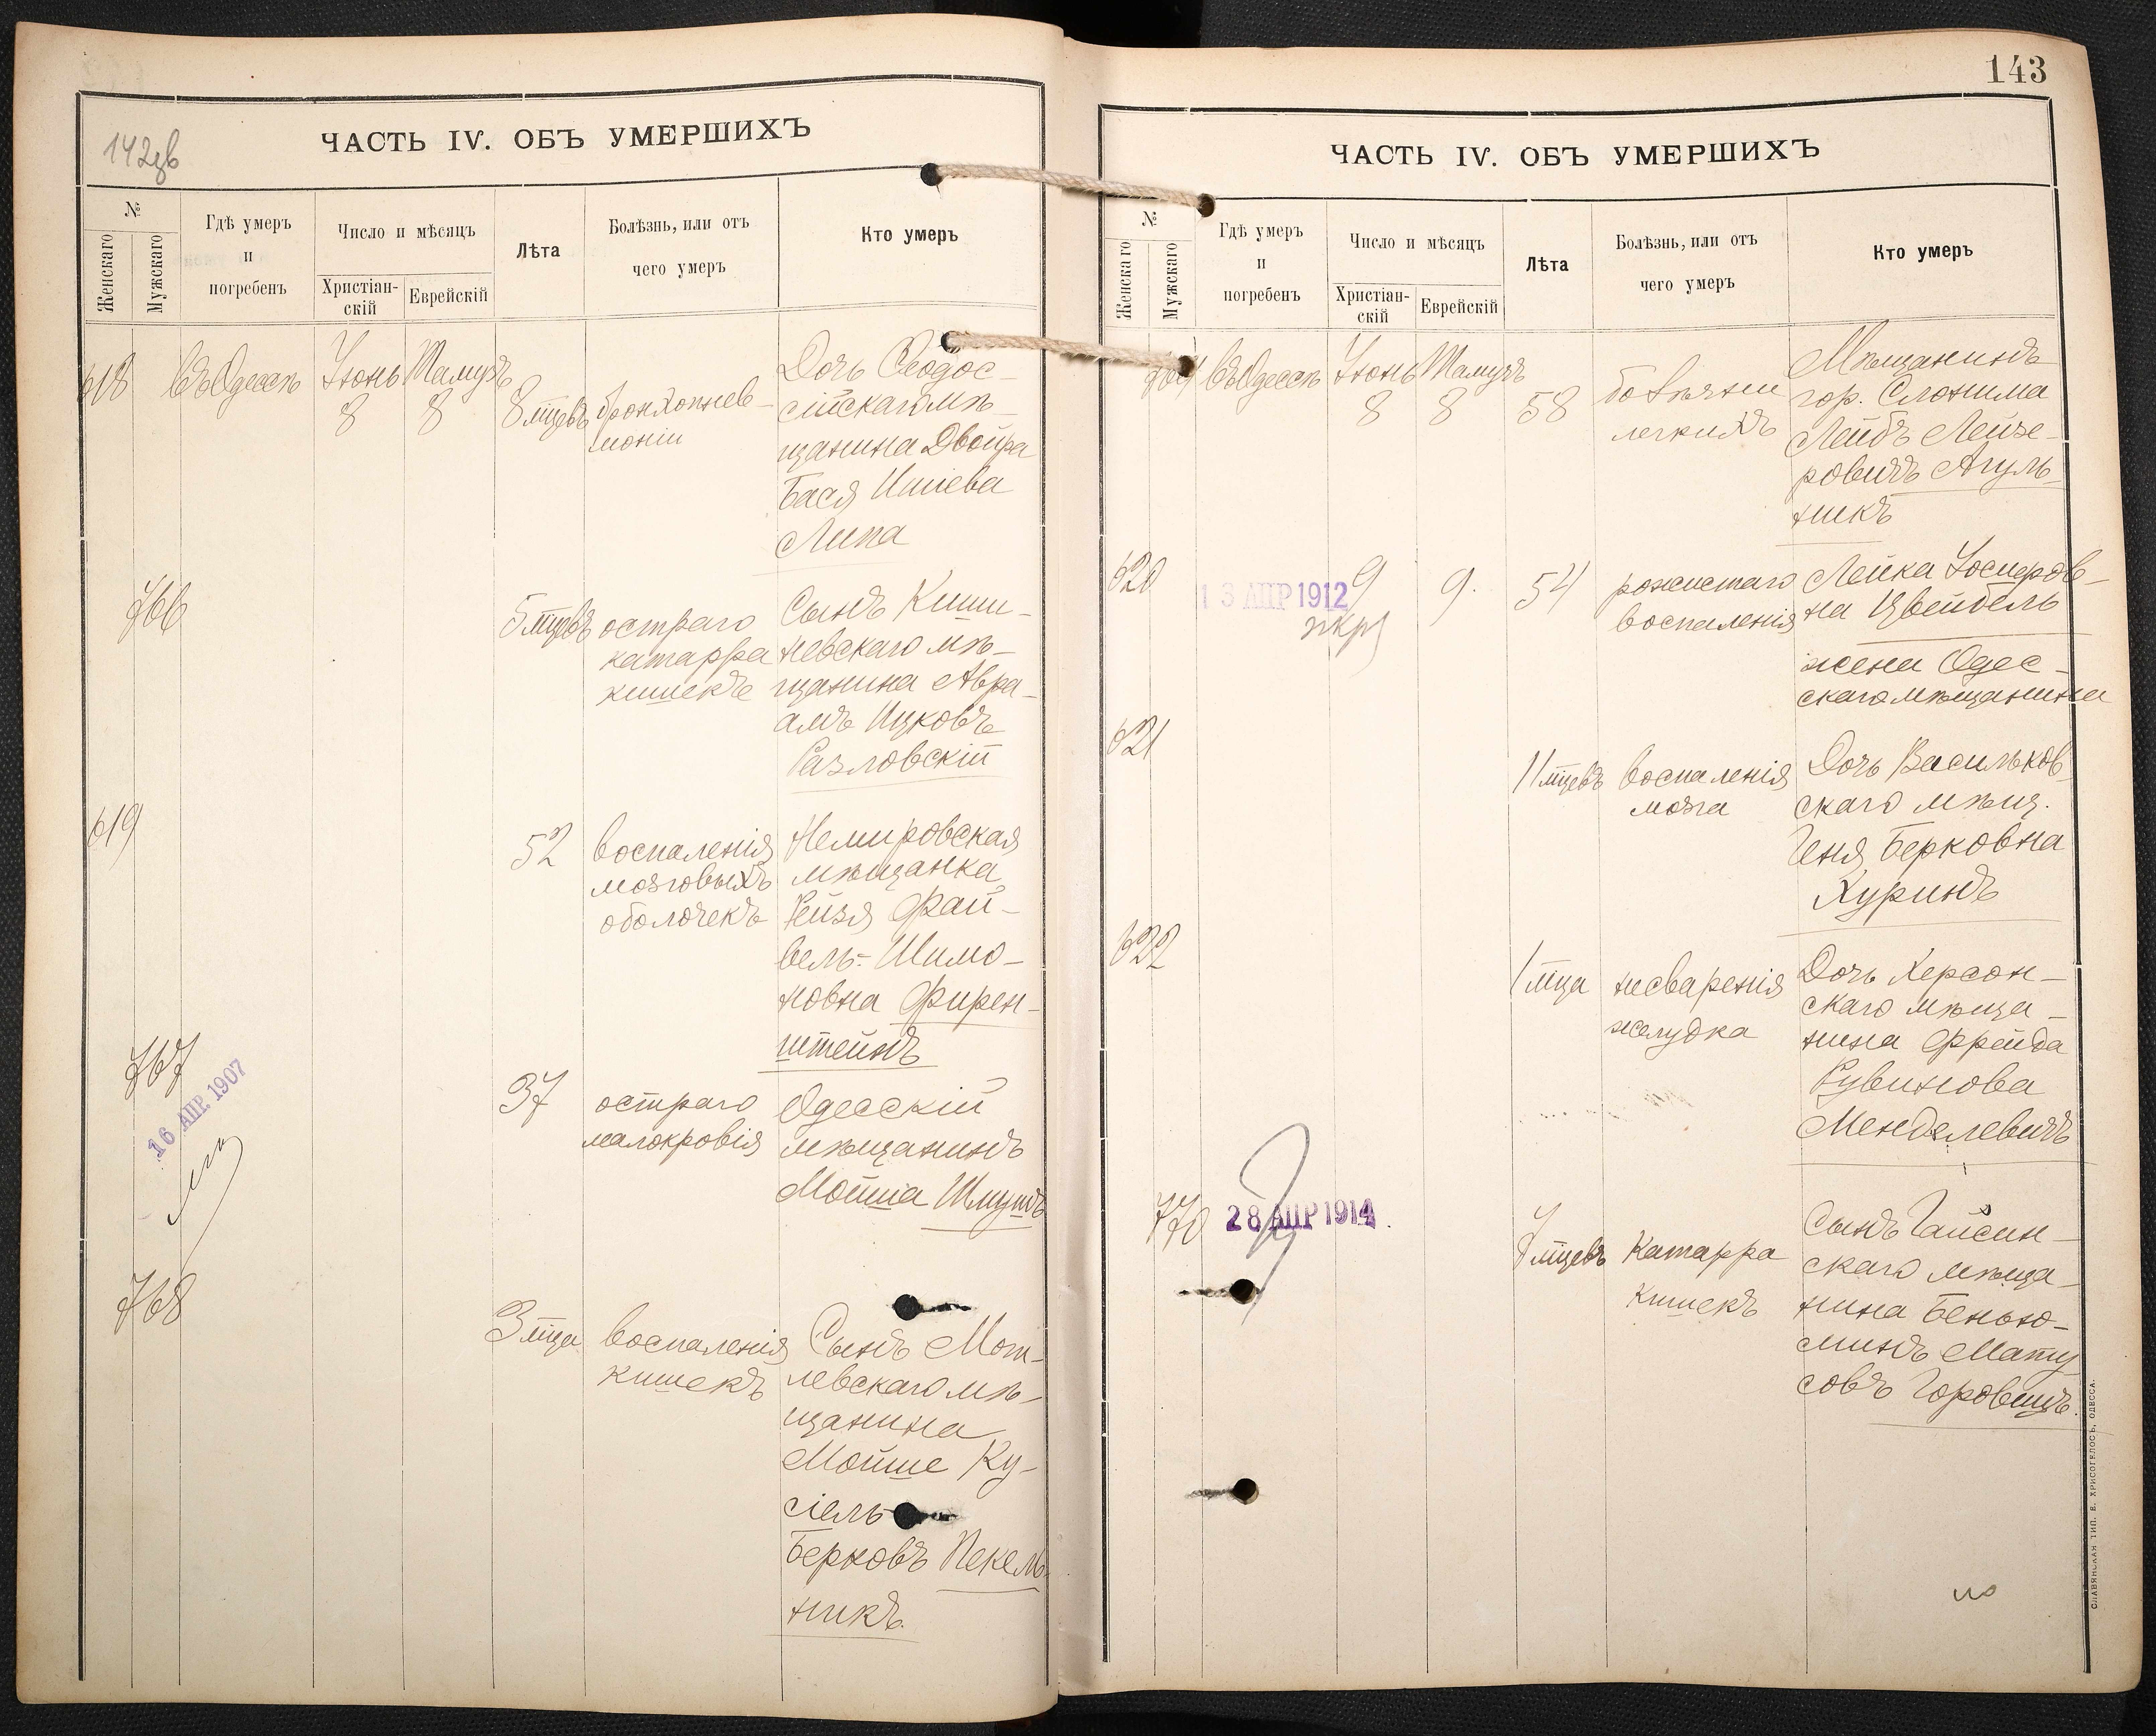 142 об
ЧАСТЬ IV. ОБЪ УМЕРШИХЪ
№
Женскаго
Мужскаго
Гдѣ умеръ
и
погребенъ
Число и мѣсяцъ
Христіан-
скій
Еврейскій
Лѣта
Болѣзнь, или отъ
чего умеръ
Кто умеръ
618
Въ Одессѣ
Іюнь
8
Тамузъ
8
8 мцевъ
бронхопнев-
моніи
Дочь Ѳеодос-
сійскаго мѣ-
щанина Двойра
Бася Иціева
Липа
766
5 мцевъ
остраго
катарра
кишекъ
Сынъ Киши-
невскаго мѣ-
щанина Авра-
амъ Ицковъ
Разловскій
619
52
воспаленія
мозговыхъ
оболочекъ
Немировская
мѣщанка
Рейзя Фай-
вель-Шимо-
новна Фирен-
штейнъ
767
16 АПР. 1907
37
остраго
малокровія
Одесскій
мѣщанинъ
Мойша Шмушъ
768
3 мца
воспаленія
кишекъ
Сынъ Мог-
левскаго мѣ-
щанина
Мойше Ку-
сіель
Берковъ Пекель-
никъ.
143
ЧАСТЬ IV. ОБЪ УМЕРШИХЪ
№
Женскаго
Мужскаго
Гдѣ умеръ
и
погребенъ
Число и мѣсяцъ
Христіан-
скій
Еврейскій
Лѣта
Болѣзнь, или отъ
чего умеръ
Кто умеръ
769
Въ Одессѣ
Іюнь
8
Тамузъ
8
58
болѣзни
легкихъ
Мѣщанинъ
гор. Слонима
Лейбъ Лейзе-
ровичъ Агуль-
никъ
620
13 АПР 1912
9
9.
54
рожистаго
воспаленія
Лейка Іосифов-
на Цвейбель
жена Одес-
скаго мѣщанина
621
11 мцевъ
воспаленія
мозга
Дочь Васильков-
скаго мѣщ.
Геня Берковна
Хуринъ
622
1 мца
несваренія
желудка
Дочь Херсон-
скаго мѣща-
нина Фрейда
Рувинова
Менделевичъ
770
28 АПР 1914
7 мцевъ
Катарра
кишекъ
Сынъ Гайсин-
скаго мѣща-
нина Беньо-
минъ Мату
совъ Горовицъ.
СЛАВЯНСКАЯ ТИП. Е. ХРИСОГЕЛОСЪ, ОДЕССА.